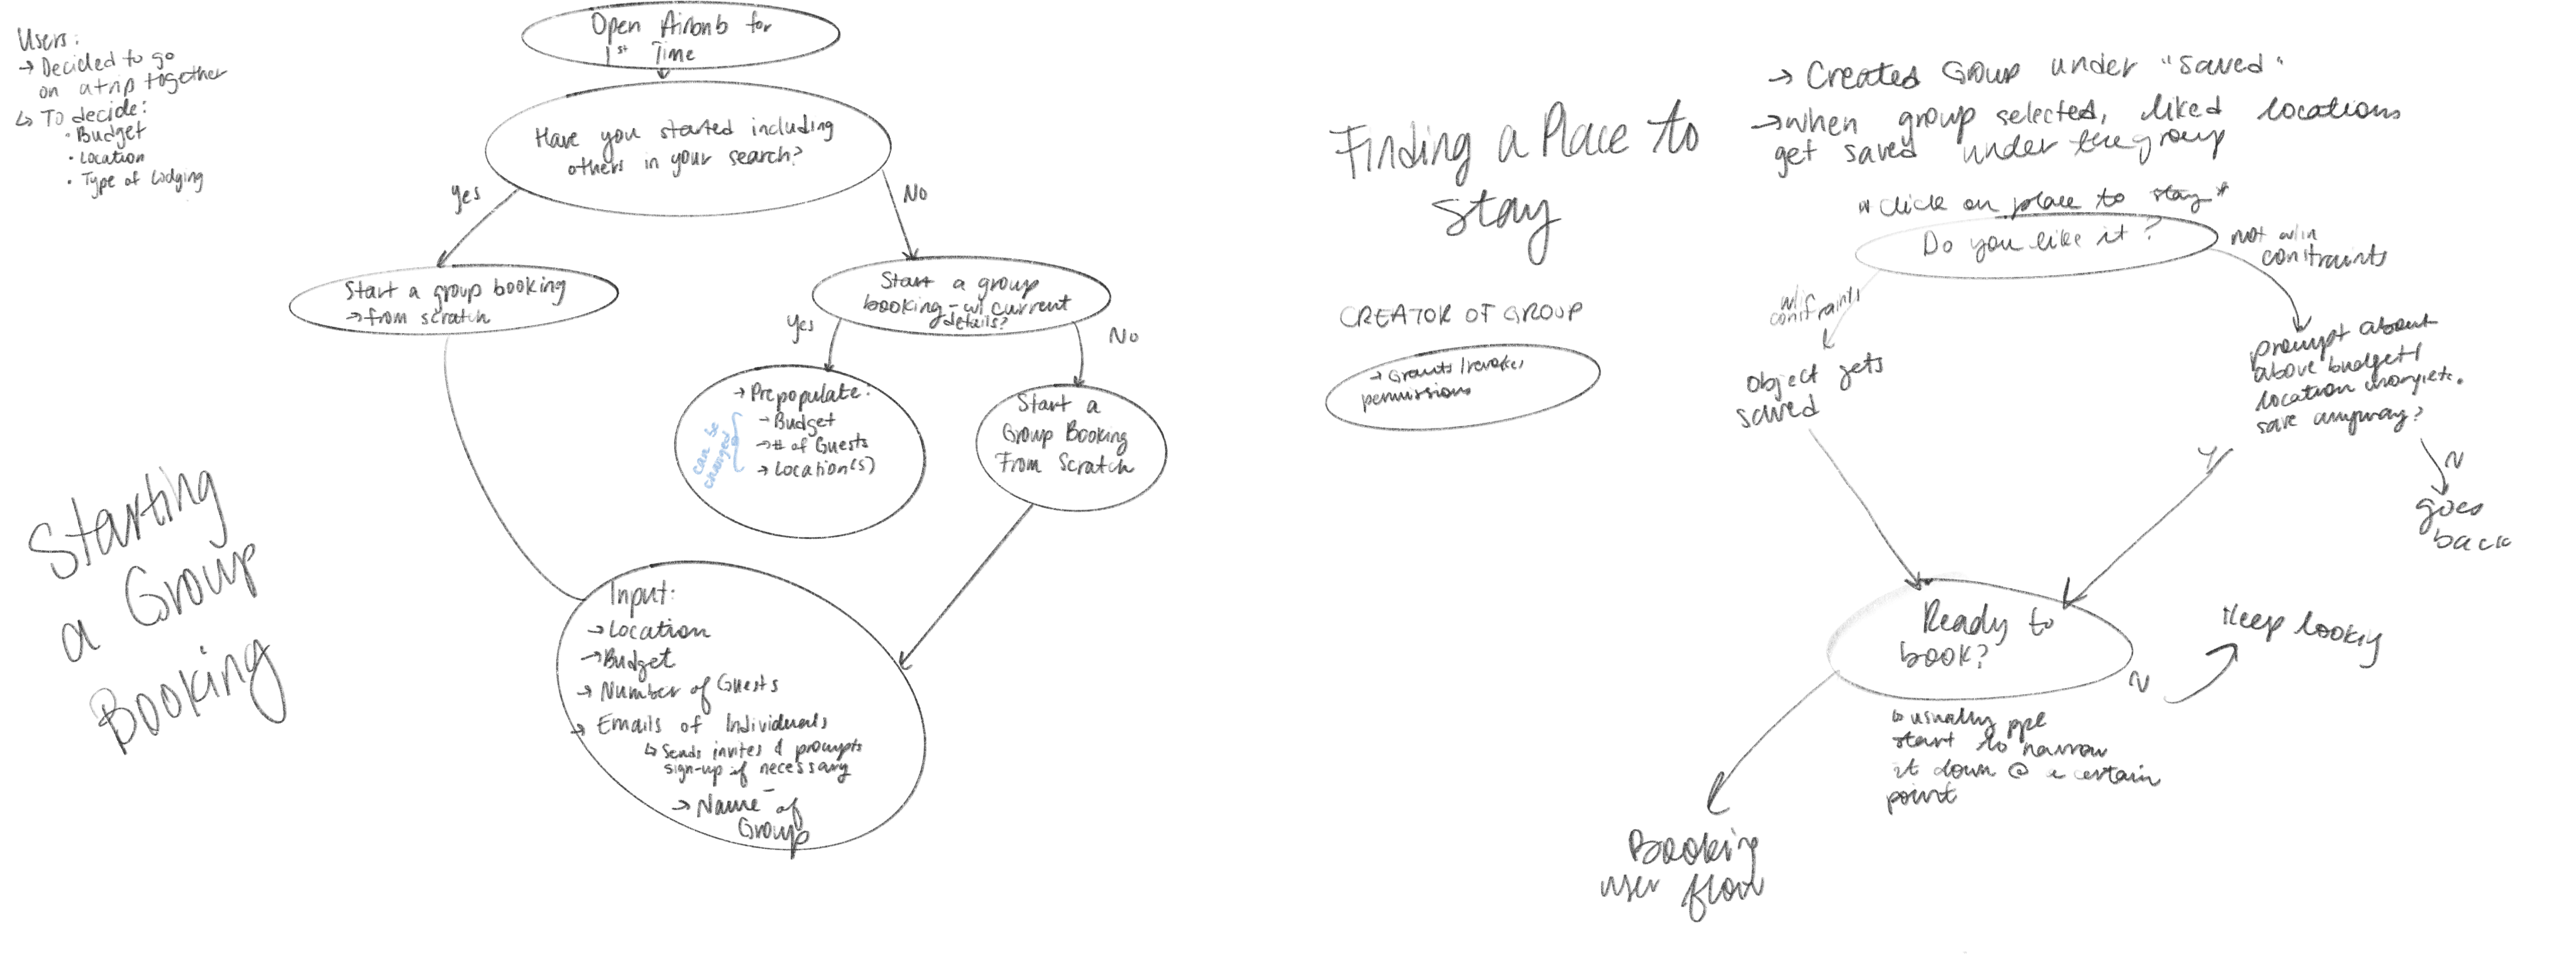 Users:
→ Decided to go
on a trip together
↳ To decide:
• Budget
• Location
• Type of Lodging
Starting
a Group
Booking
Open Airbnb for
1st Time
Have you started including
others in your search?
Yes
No
Start a group booking
→ from scratch
Start a group
booking - w/ current
details?
Yes
No
→ Prepopulate:
→ Budget
→ # of Guests
→ Location(s)
can be
changed
Start a
Group Booking
From Scratch
Input:
→ Location
→ Budget
→ Number of Guests
→ Emails of Individuals
↳ Sends invites & prompts
sign-up if necessary
→ Name of
Group
Finding a Place to
Stay
CREATOR OF GROUP
→ Grants/revokes
permissions
→ Created Group under "saved"
→ when group selected, liked locations
get saved under the group
* Click on place to stay *
Do you like it?
w/in
constraints
not w/in
contraints
object gets
saved
prompt about
above budget/
location
save anyway?
Y
N
goes
back
Ready to
book?
N
Keep looking
↳ usually ppl
start to narrow
it down @ a certain
point
Booking
user flow